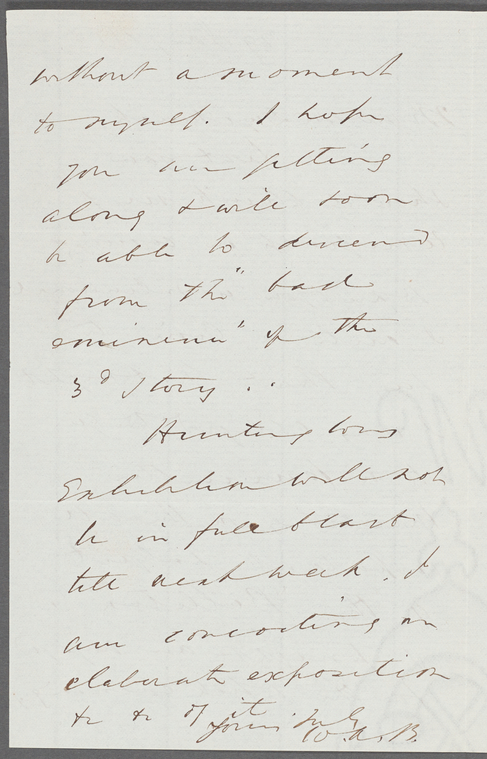 without a moment
to myself. I hope
you are getting
along & will soon
be able to descend
from the "bad
eminence" of the
3d Story..
Huntingtons
Exhibition will not
be in full blast
till next week. I
am concocting an
elaborate exposition
&c &c of it
Yours truly
W.A.B.